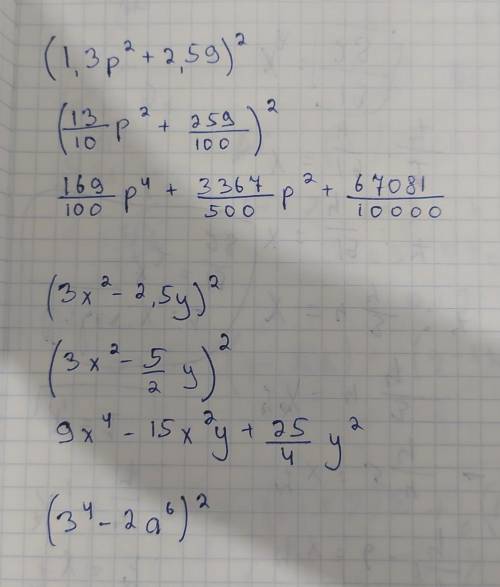 (1,3p² + 2,59)²
(13/10 p² + 259/100)²
169/100 p⁴ + 3367/500 p² + 67081/10000
(3x² - 2,5y)²
(3x² - 5/2 y)²
9x⁴ - 15x²y + 25/4 y²
(3⁴ - 2a⁶)²